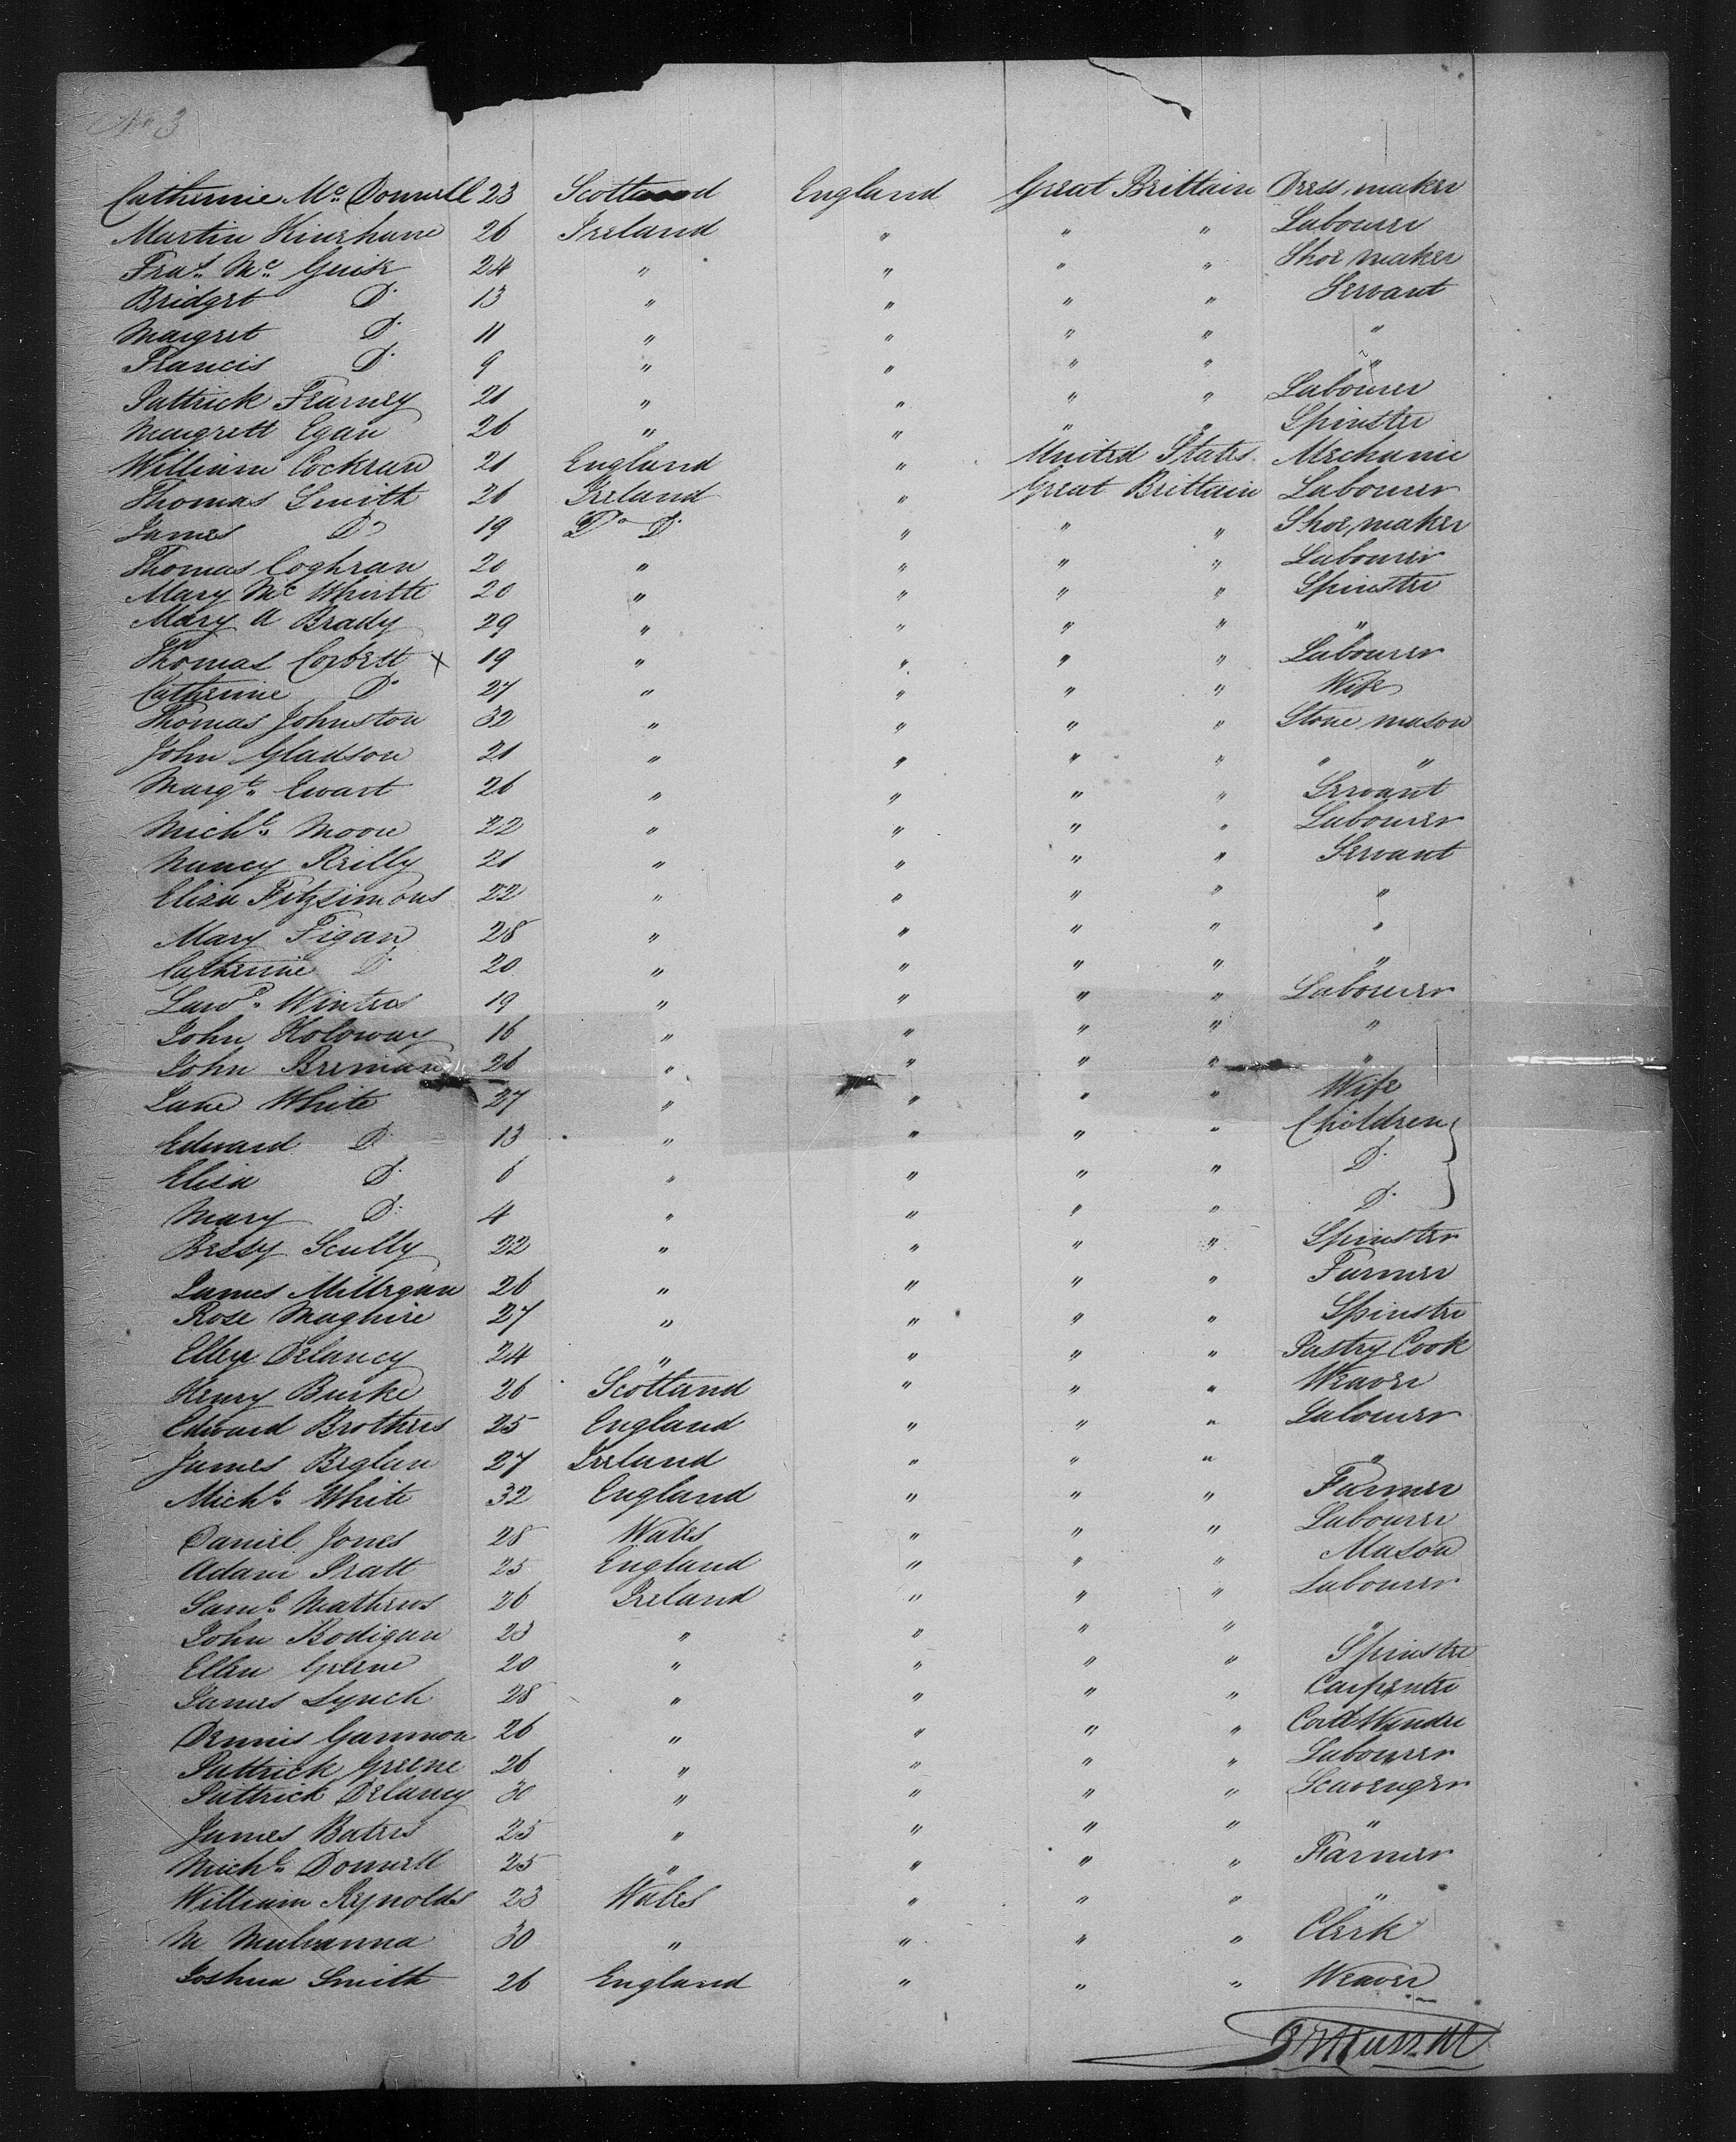 No 3
Catherine Mc Donnell 23 Scotland England Great Brittain Dress maker
Martin Kinshane 26 Ireland " " " Labourer
Fras. Mc Guisk 24 " " " " Shoe maker
Bridget Do 13 " " " " Servant
Margret Do 11 " " " " "
Francis Do 9 " " " " "
Pattrick Fearney 21 " " " " Labourer
Margrett Egan 26 " " " " Spinster
William Cockran 21 England " United States Mechanic
Thomas Smith 26 Ireland " Great Brittain Labourer
James Do 19 Do Do " " " Shoe maker
Thomas Coghran 20 " " " " Labourer
Mary Mc Whirtte 20 " " " " Spinster
Mary A Brady 29 " " " " "
Thomas Corbett x 19 " " " " Labourer
Catherine Do 27 " " " " Wife
Thomas Johnston 32 " " " " Stone mason
John Gladson 21 " " " " " "
Margt. Ewart 26 " " " " Servant
Michl. Moore 22 " " " " Labourer
Nancy Reilly 21 " " " " Servant
Eliza Fitzsimons 22 " " " " "
Mary Figan 28 " " " " "
Catherine Do 20 " " " " "
Lawr. Winters 19 " " " " Labourer
John Holoway 16 " " " " "
John Brennan 26 " " " " "
Jane White 27 " " " " Wife
Edward Do 13 " " " " Children
Eliza Do 6 " " " " Do
Mary Do 4 " " " " Do
Bessy Scully 22 " " " " Spinster
James Millegan 26 " " " " Farmer
Rose Maghire 27 " " " " Spinster
Ellen Delancy 24 " " " " Pastry Cook
Henry Burke 26 Scotland " " " Weaver
Edward Brothers 25 England " " " Labourer
James Beglan 27 Ireland " " " "
Michl. White 32 England " " " Farmer
Daniel Jones 28 Wales " " " Labourer
Adam Pratt 25 England " " " Mason
Saml. Mathews 26 Ireland " " " Labourer
John Bodigan 23 " " " " "
Ellen Greene 20 " " " " Spinster
James Lynch 28 " " " " Carpenter
Dennis Gannon 26 " " " " Cord Wynder
Pattrick Greene 26 " " " " Labourer
Pattrick Delancy 30 " " " " Scavenger
James Bates 25 " " " " "
Michl. Donnell 25 " " " " Farmer
William Reynolds 23 Wales " " " "
M Mulvanna 30 " " " " Clerk
Joshua Smith 26 England " " " Weaver